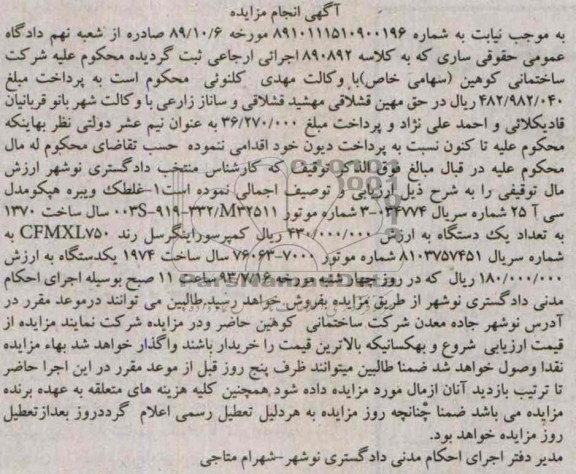 آگهی انجام مزایده
به موجب نیابت به شماره ۸۹۱۰۱۱۱۵۱۰۹۰۰۱۹۶ مورخه ۸۹/۱۰/۶ صادره از شعبه نهم دادگاه
عمومی حقوقی ساری که به کلاسه ۸۹۰۸۹۲ اجرائی ارجاعی ثبت گردیده محکوم علیه شرکت
ساختمانی کوهین (سهامی خاص)با وکالت مهدی کلنوئی محکوم است به پرداخت مبلغ
۴۸۲/۹۸۲/۰۴۰ ریال در حق مهین قشلاقی مهشید قشلاقی و ساناز زارعی با وکالت شهر بانو قربانیان
قادیکلائی و احمد علی نژاد و پرداخت مبلغ ۳۶/۲۷۰/۰۰۰ به عنوان نیم عشر دولتی نظر بهاینکه
محکوم علیه تا کنون نسبت به پرداخت دیون خود اقدامی ننموده حسب تقاضای محکوم له مال
محکوم علیه در قبال مبالغ فوق الذکر توقیف که کارشناس منتخب دادگستری نوشهر ارزش
مال توقیفی را به شرح ذیل ارزیابی و توصیف اجمالی نموده است۱-غلطک ویبره هپکومدل
سی آ ۲۵ شماره سریال ۰۳۴۷۷۴-۳ شماره موتور ۰۰۳S-۹۱۹-۳۳۲/M۳۲۵۱۱ سال ساخت ۱۳۷۰
به تعداد یک دستگاه به ارزش ۴۳۰/۰۰۰/۰۰۰ ریال کمپرسوراینگرسل رند CFMXL۷۵۰ به
شماره سریال ۸۱۰۳۷۵۷۴۵۱ شماره موتور ۷۰۰۰-۷۶۰۶۳ سال ساخت ۱۹۷۴ یکدستگاه به ارزش
۱۸۰/۰۰۰/۰۰۰ ریال که در روز چهار شنبه مورخه ۹۳/۷/۱۶ ساعت ۱۱ صبح بوسیله اجرای احکام
مدنی دادگستری نوشهر از طریق مزایده بفروش خواهد رسید.طالبین می توانند درموعد مقرر در
آدرس نوشهر جاده معدن شرکت ساختمانی کوهین حاضر ودر مزایده شرکت نمایند مزایده از
قیمت ارزیابی شروع و بهکسانیکه بالاترین قیمت را خریدار باشند واگذار خواهد شد بهاء مزایده
نقدا وصول خواهد شد ضمنا طالبین میتوانند ظرف پنج روز قبل از موعد مقرر در این اجرا حاضر
تا ترتیب بازدید آنان ازمال مورد مزایده داده شود.همچنین کلیه هزینه های متعلقه به عهده برنده
مزایده می باشد ضمنا چنانچه روز مزایده به هردلیل تعطیل رسمی اعلام گرددروز بعدازتعطیل
روز مزایده خواهد بود.
مدیر دفتر اجرای احکام مدنی دادگستری نوشهر-شهرام متاجی